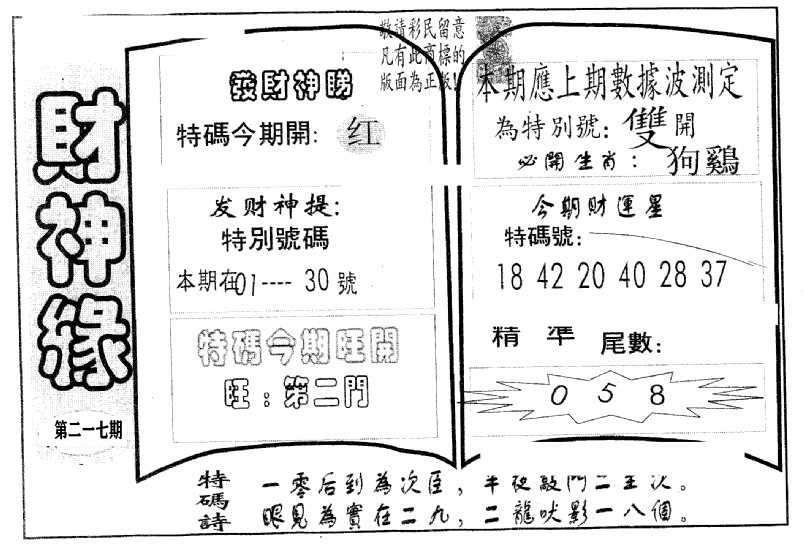 敬請彩民留意
凡有此商標的
版面為正版!
財神緣
第二一七期
發財神睇
特碼今期開: 红
发财神提:
特別號碼
本期在01----30號
特碼今期旺開
旺:第二門
本期應上期數據波測定
為特別號:雙開
必開生肖:狗鷄
今期财運星
特碼號:
18 42 20 40 28 37
精準 尾數:
0 5 8
特碼詩
一零后到為次臣,半夜敲門二至次。
眼見為實在二九,二龍吠影一八個。